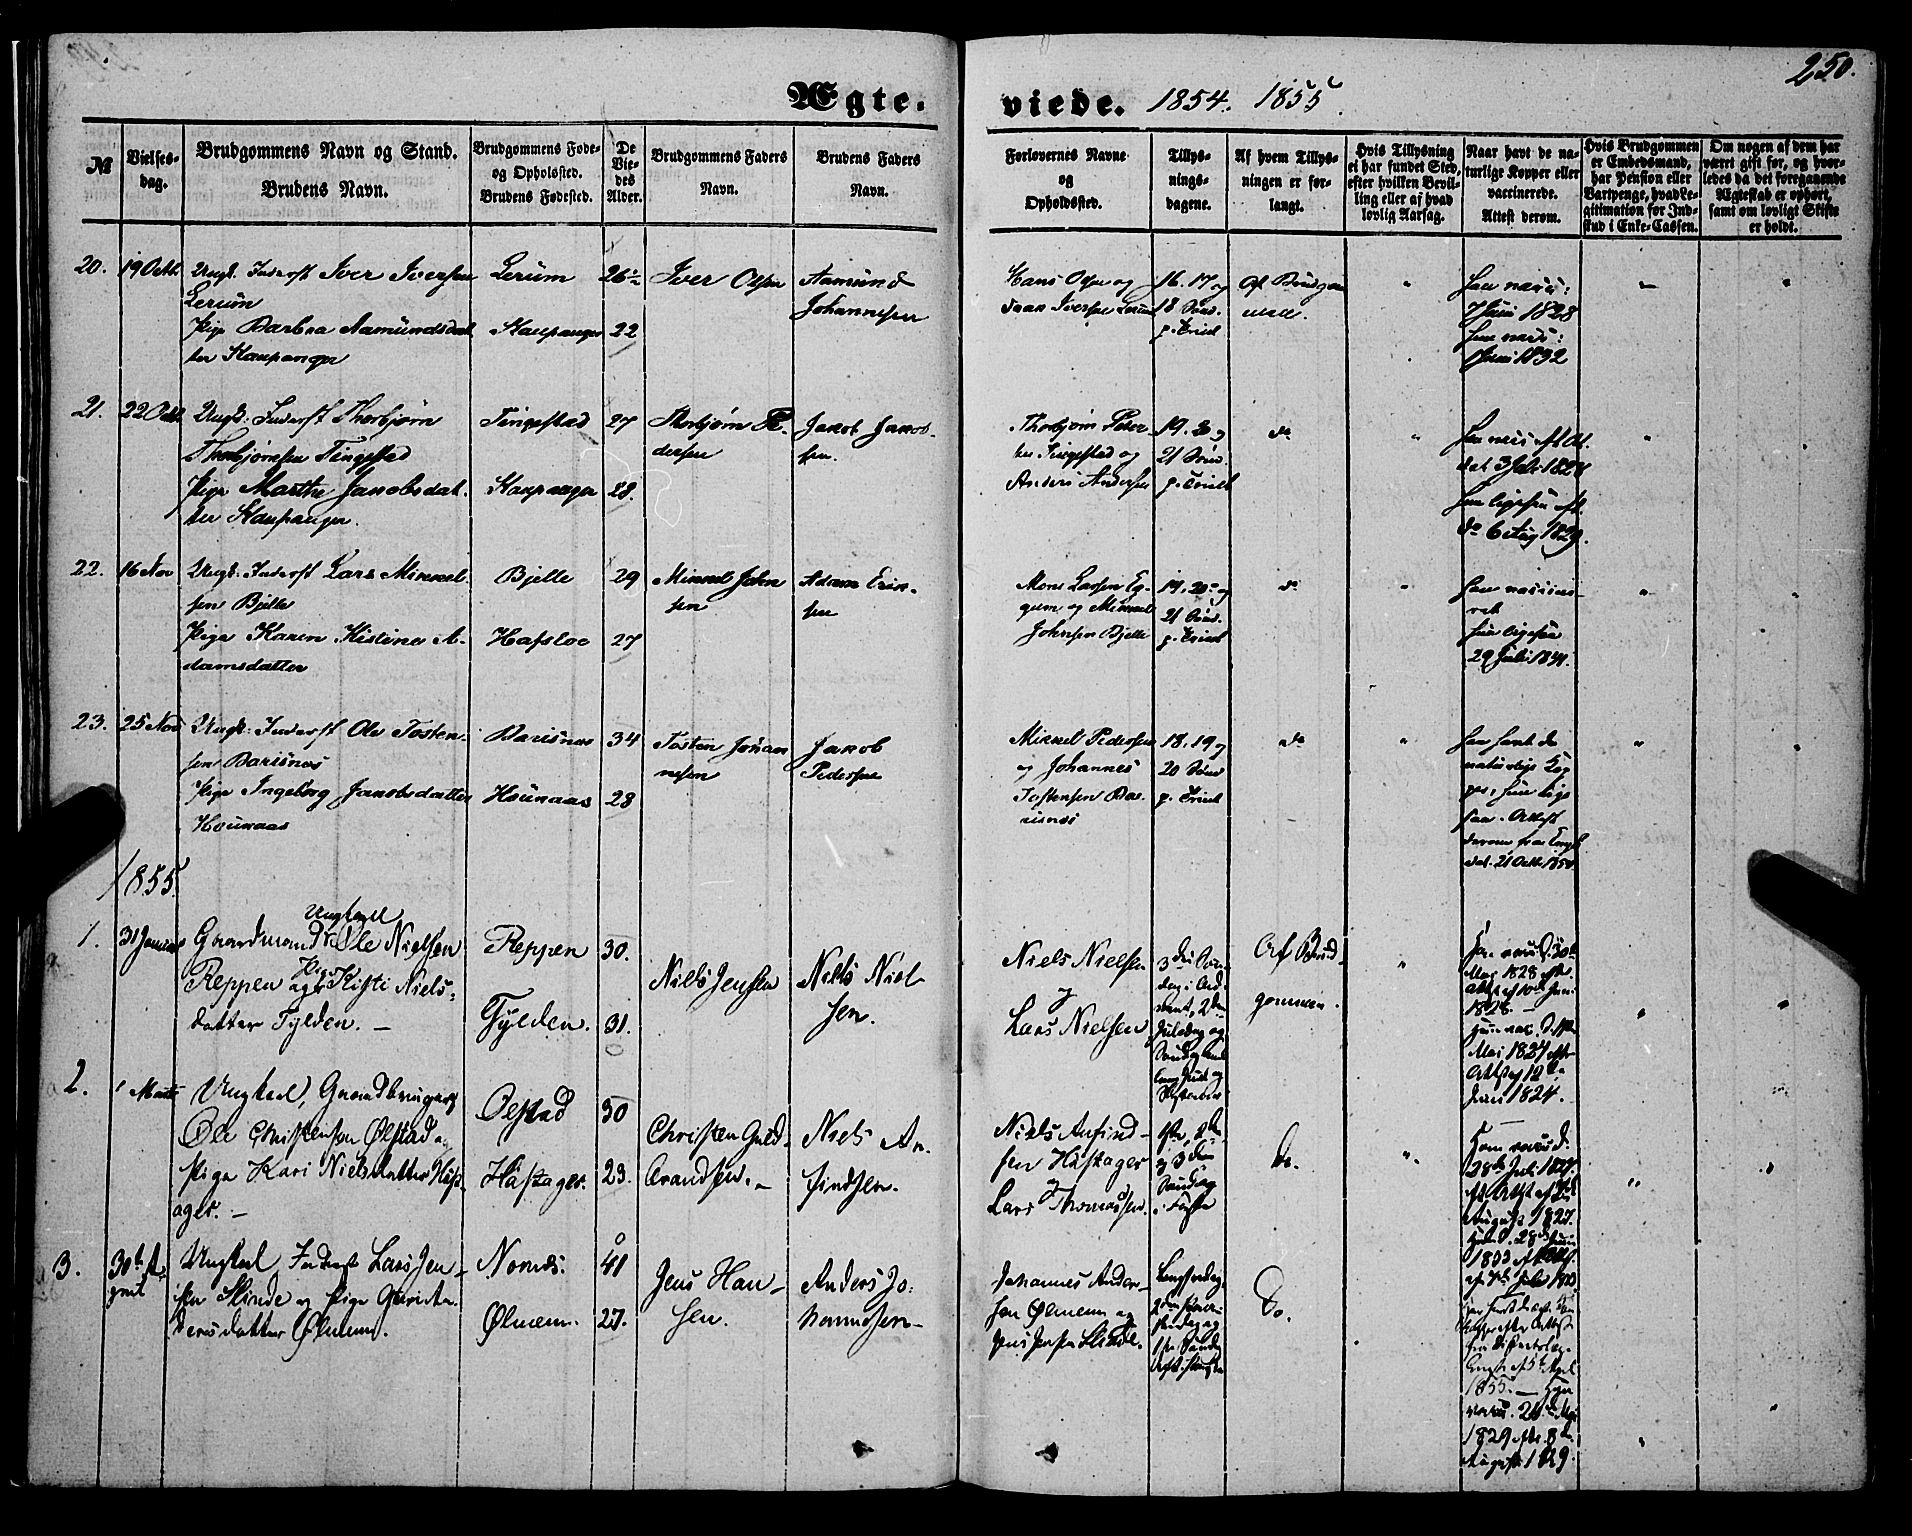 250.
Ægte-
viede. 1854. 1855.
№
Vielses-
dag.
Brudgommens Navn og Stand.
Brudens Navn.
Brudgommens Føde-
og Opholdssted.
Brudens Fødested.
De
Vie-
des
Alder.
Brudgommens Faders
Navn.
Brudens Faders
Navn.
Forlovernes Navne
og
Opholdssted.
Tillys-
nings-
dagene.
Af hvem Tillys-
ningen er for-
langt.
Hvis Tillysning
ei har fundet Sted,
efter hvilken Bevil-
ling eller af hvad
lovlig Aarsag.
Naar havt de na-
turlige Kopper eller
vaccinerede.
Attest derom.
Hvis Brudgommen
er Embedsmand,
har Pension eller
Vartpenge, hvad Le-
gitimation for Ind-
skud i Enke-Cassen.
Om nogen af dem har
været gift før, og hvor-
ledes da det foregaaende
Ægteskab er ophørt,
samt om lovligt Skifte
er holdt.
20.
19 Octb.
Ungk. Inderst Iver Iversen
Lerum
Pige Barbra Aamundsdat
ter Kaupanger
Lerum
Kaupanger
26
22
Iver Olsen
Aamund
Johannesen
Hans Olsen og
Iversen Lerum
16. 17 og
18 Sønd.
p. Trinit
Af Brudgom
men.
han vacc:
7 Juni 1828
hun vacc:
Juni 1832
21.
22 Octb
Ungk: Inderst Thorbjørn
Thorbjørnsen Tingestad
Pige Marthe Jacobsdat-
ter Kaupanger.
Tingestad
Kaupanger
27
28.
Thorbjørn Pe-
dersen
Jakob Jakob-
sen.
Thorbjørn Peter
sen Tingestad og
Anders Andersen
19. 20 og
21 Sønd.
p. Trinit
do
22.
16 Nov
Ungk: Inderst Lars Mikkel-
sen Bjelle
Pige Karen Kistine A-
damsdatter
Bjelle
Hafsloe
29
27
Mikkel John
sen
Adam Erik-
sen
Mons Larsen Eg-
gum og Mikkel
Johnsen Bjelle
19, 20 og
21 Sønd.
p. Trinit
do
han vaccine-
ret
hun ligesaa
29 Juli
23.
25 Nov
Ungk: Inderst Ole Tosten-
sen Barsnes
Pige Ingeborg Jacobsdatter
Hounaas
Barsnes
Hounaas
34
28
Tosten Johan
nesen
Jakob
Pedersen
Mikkel Pedersen
og Johannes
Tostensen Bar-
snes
18, 19 og
20 Sønd
p. Trinit
do
han havt de
naturlige Kop
per, hun lige
saa. Attest
derom fra
dat. 21 Octb. 1854
1855.
1.
31 Januar
Ungkarl
Gaardmand Ole Nielsen
Reppen og Pige Kisti Niels-
datter Tylden. —
Reppen
Tylden.
30.
31.
Niels Jensen
Niels Niel
sen.
Niels Nielsen
og
Lars Nielsen
3die Søn
dag i Ad-
vent, 2den
Juledag og
Af Brud
gommen.
Mai 1828
1828. —
Mai 1824
Juni 1824.
2.
1 Marts
Ungkarl, Gaardbruger
Ole Christensen Ølstad og
Pige Kari Nielsdatter Høst
ager. —
Oelstad
Høstager.
30
23.
Christen Guld-
brandsen. —
Niels An-
findsen.
Niels Anfind-
sen Høstager
og
Lars Thomassen.
1ste, 2den
og 3die
Søndag
i Faste
do.
28de Juli 1827.
August 1827.
3.
30te A-
pril
Ungkarl Inderst Lars Jen-
sen Slinde og Pige Guri An-
dersdatter Ølmem.
Nornæs.
Ølmem.
41
27.
Jens Han-
sen.
Anders Jo-
hannesen
Johannes Ander-
sen Ølmem og
Jens Jensen Slinde.
Langfredag
2den Paaske-
dag og
1ste Søndag
do.
1855. —
1829
August 1829.